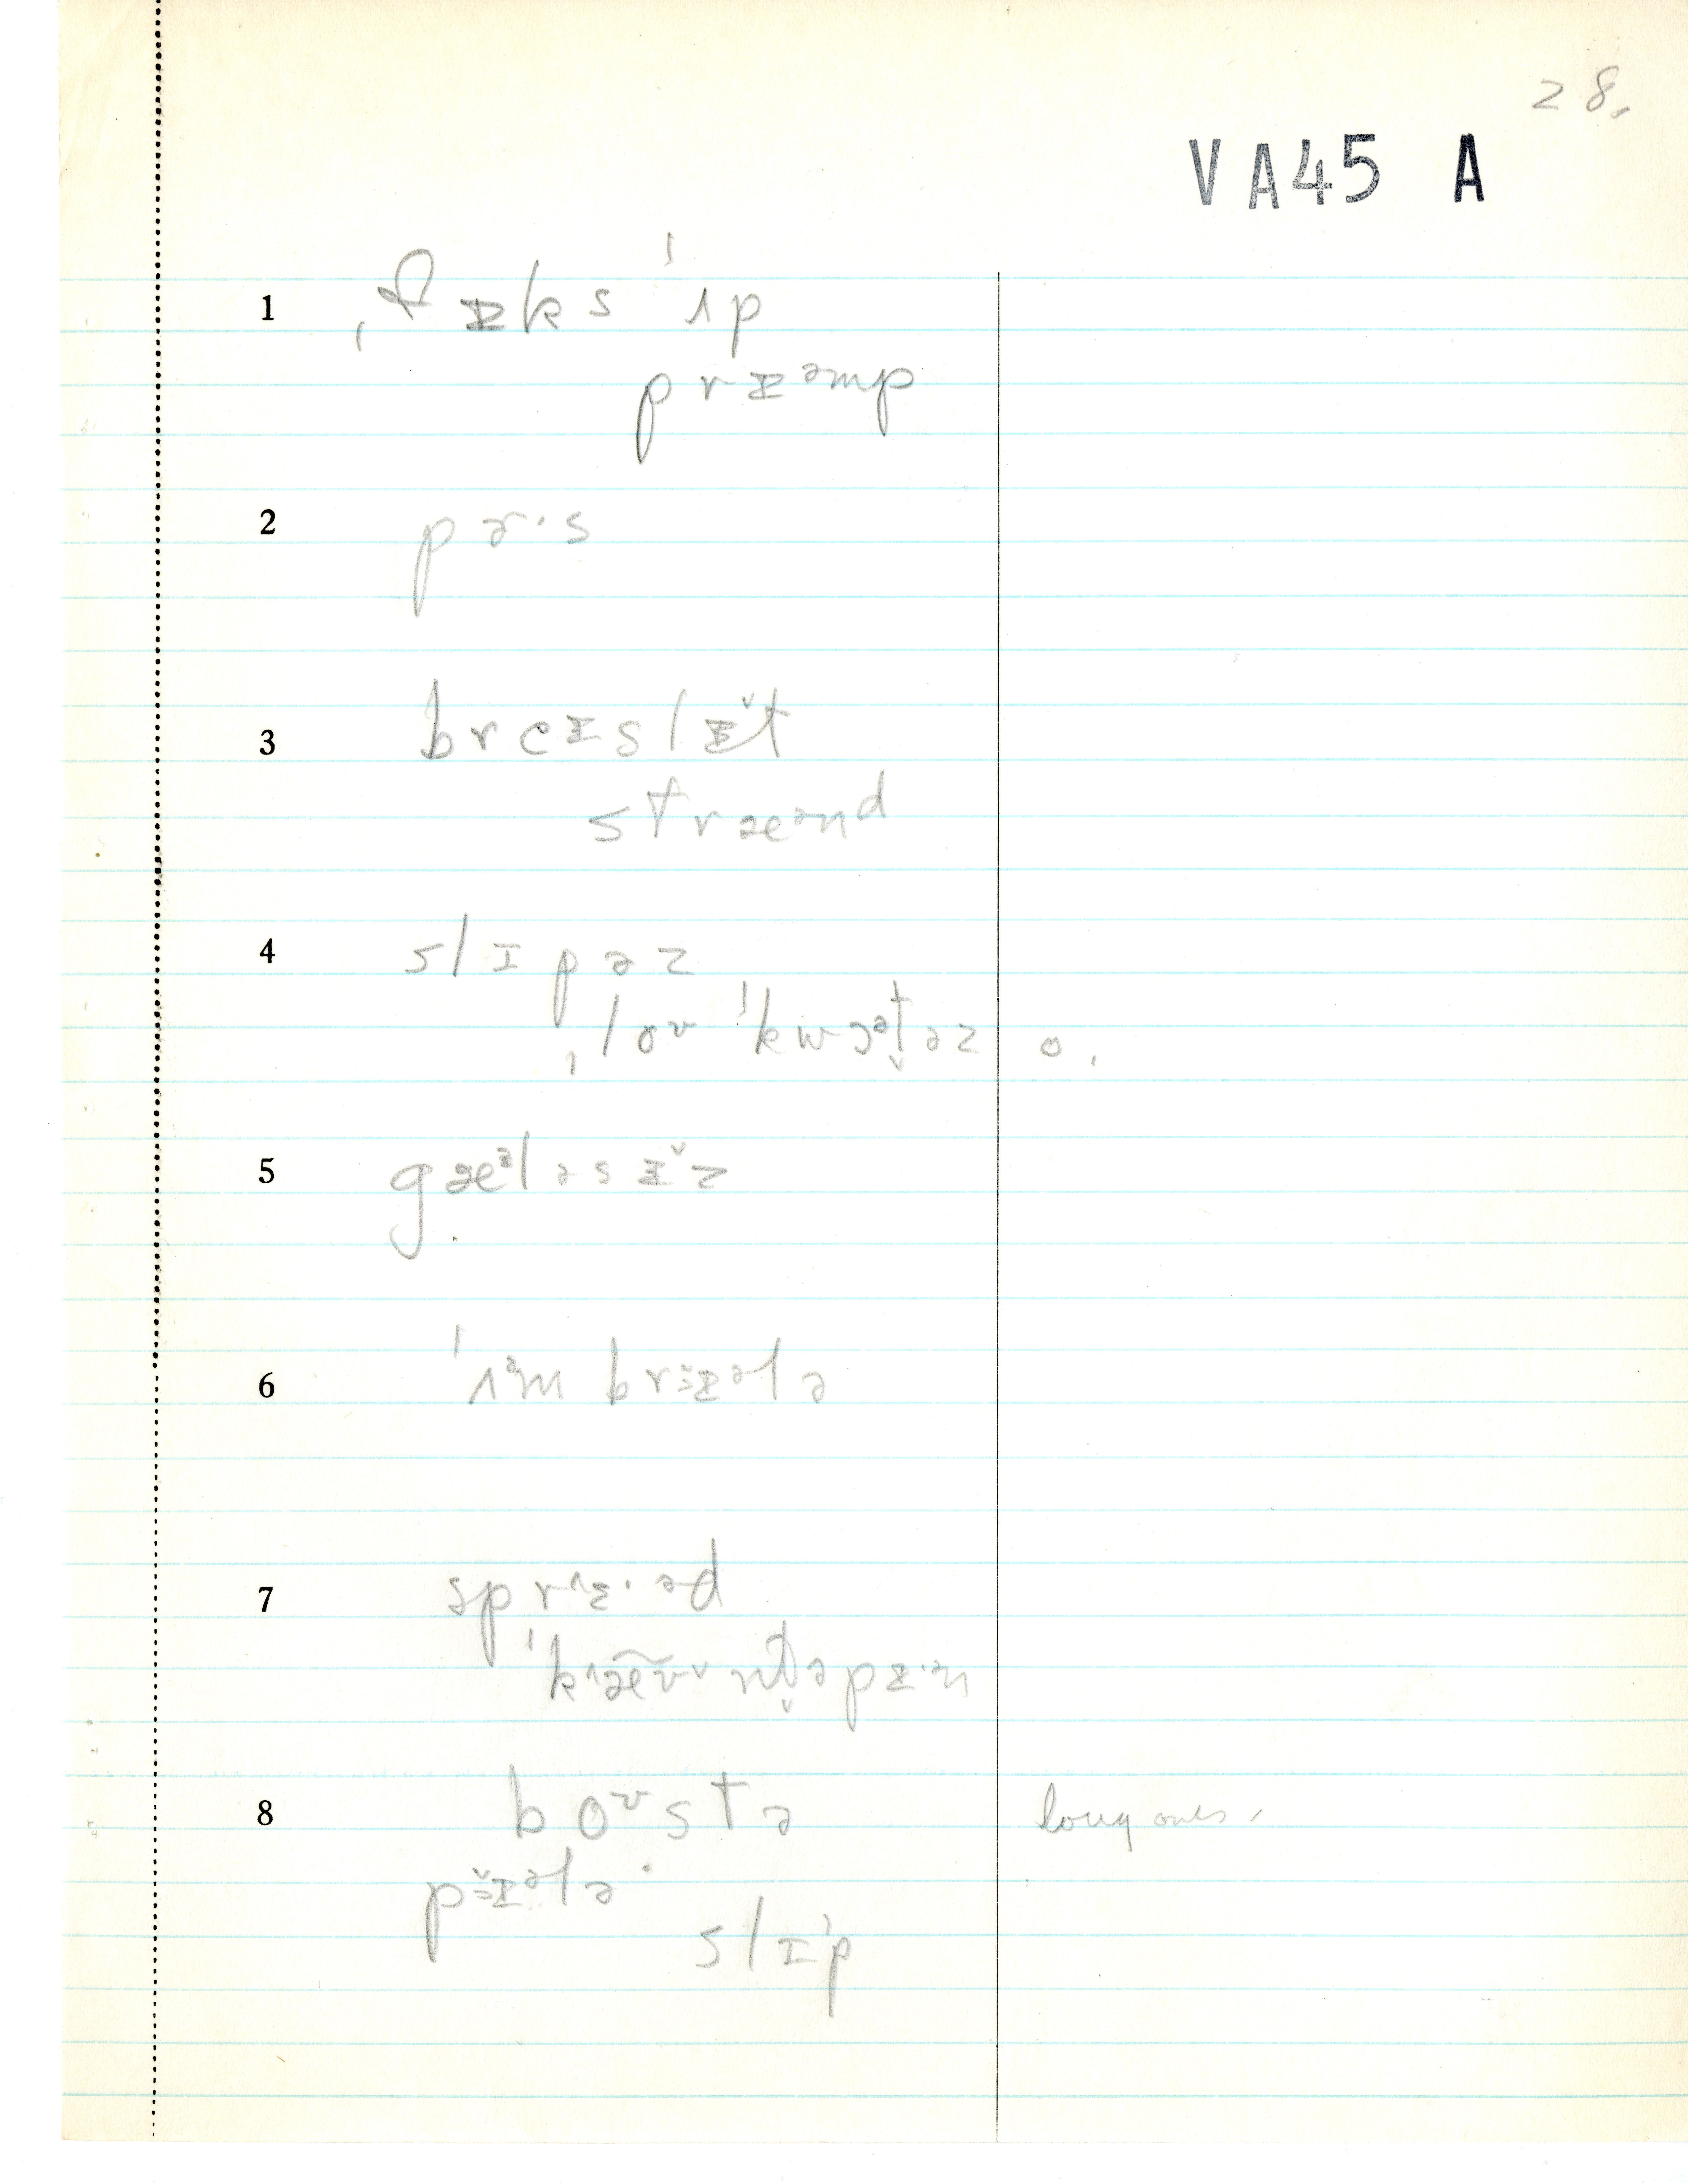 28.
VA45 A
1 ˌfɪks ˈʌp
prɪəmp
2 pɚ·s
3 breɪslɪ̌t
stræənd
4 slɪpəz
ˌloʊ ˈkwɔət̬əz o.
5 gæᵊləsɪ̌z
6 ˈʌᵊmbrɛələ
7 sprɛ·əd
ˈkæ̃ʊnt̬əpɪ·ən
8 boʊstə long ones.
pɪələ
slɪp